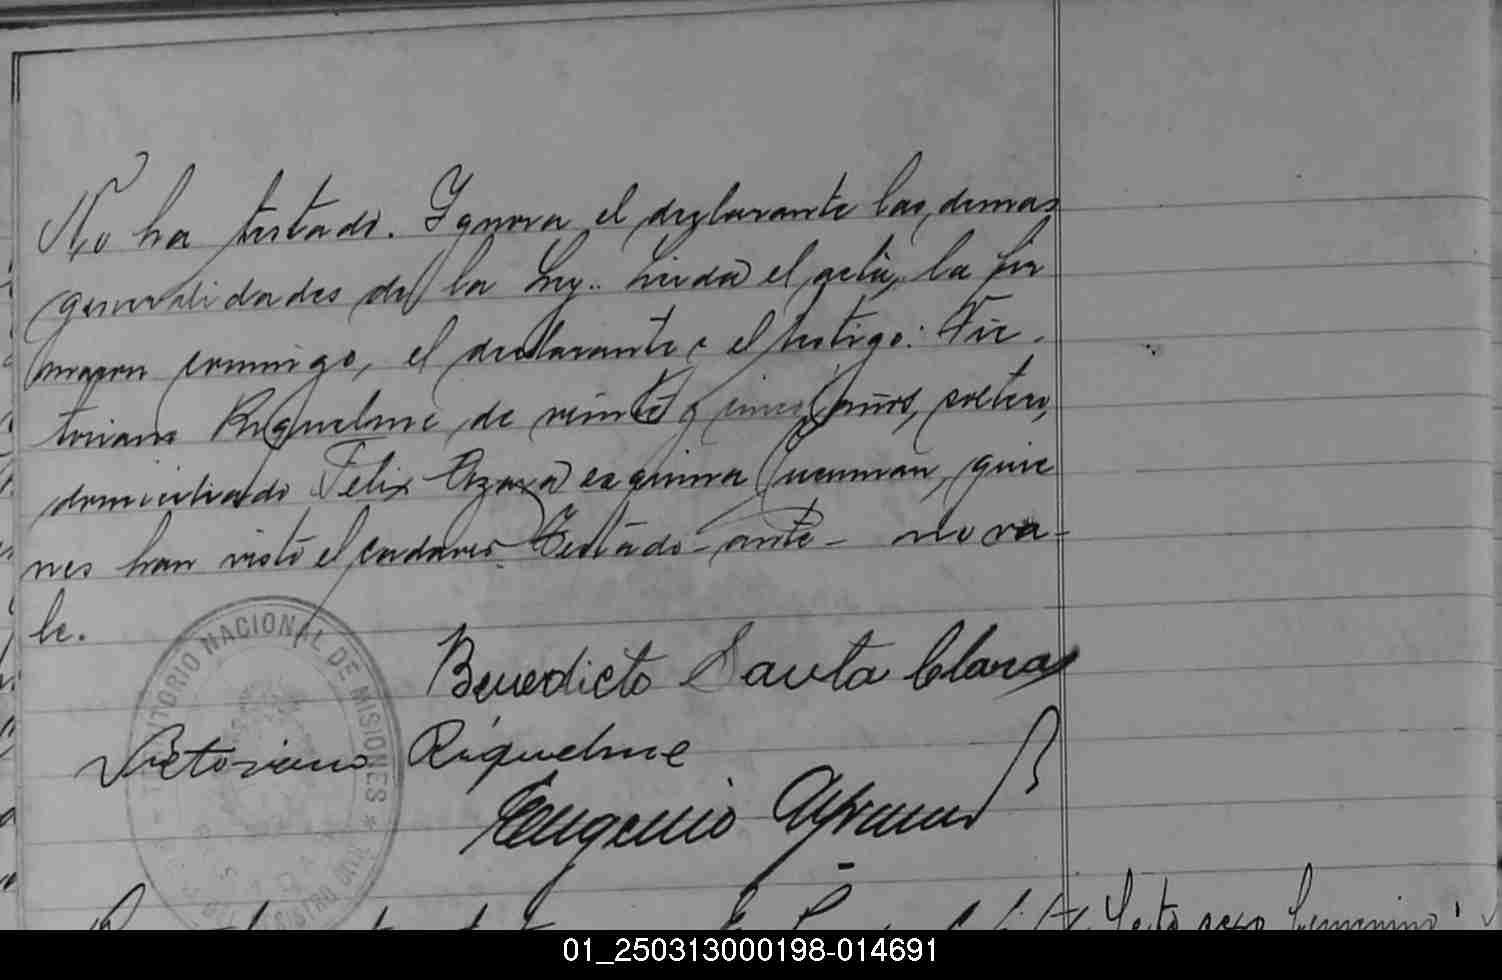 No ha testado. Ignora el declarante las demas
generalidades de la Ley. Leida el acta, la fir
maron conmigo, el declarante e el testigo: Vic-
toriano Riquelme de veinte y cinco años, soltero,
domiciliado Felix Azara esquina Tucuman, quie
nes han visto el cadaver. Testado - ante - no va-
le.
Benedicto Santa Clara
Victoriano Riquelme
Eugenio
TERRITORIO NACIONAL DE MISIONES
REGISTRO CIVIL
sexo femenino
01_250313000198-014691